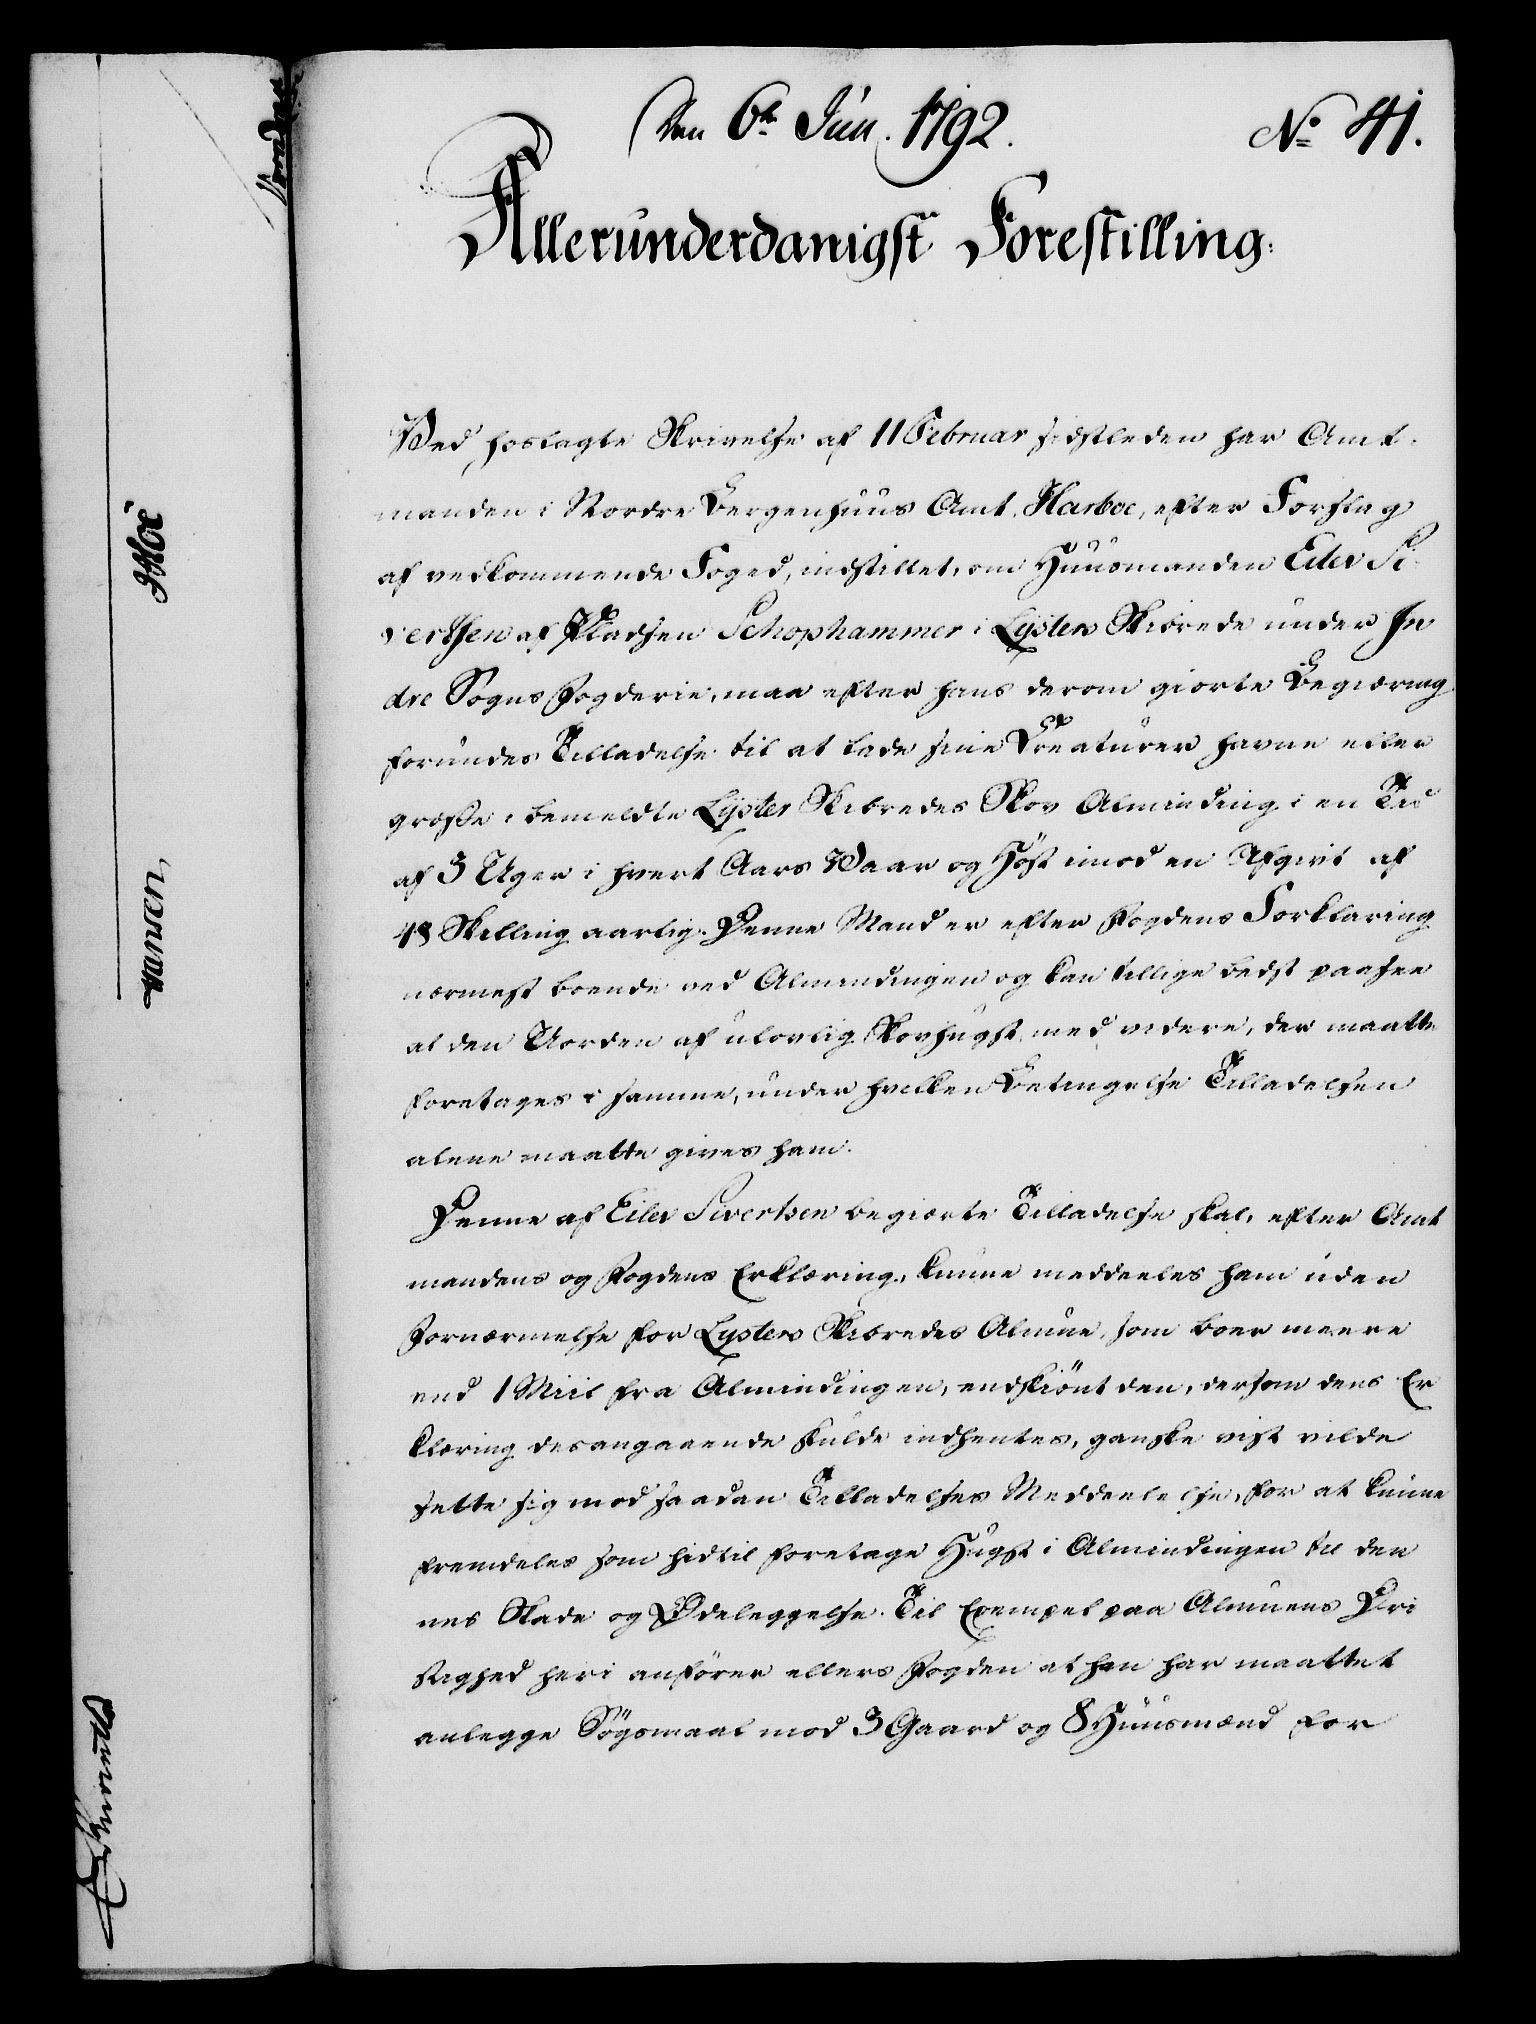 Den 6te Jun. 1792.
No 41.
Allerunderdanigst Forestilling:
Ved hoslagte Skrivelse af 11 Februar sidstleden har Amt-
manden i Nordre Bergenhuus Amt, Harboe, efter Forslag
af vedkommende Foged, indstillet, om Huusmanden Eiler Si-
vertsen af Pladsen Schophammer i Lÿsters Skibrede under In
dre Sogns Fogderie, maa efter hans derom giorte Begiæring
forundes Tilladelse til at lade sine Creaturer havne eller
græsse i bemeldte Lÿster Skibredes Skov Alminding i en Tid
af 3 Uger i hvert Aars Vaar og Høst imod en Afgivt af
48 Skilling aarlig. Denne Mand er efter Fogdens Forklaring
nærmest boende ved Almindingen og kan tillige bedst paasee
al den Uorden af ulovlig Skovhugst med videre, der maatte
foretages i samme, under hvilken Betingelse Tilladelsen
alene maatte gives ham.
Denne af Eiler Sivertsen begiærte Tilladelse skal, efter Amt
mandens og Fogdens Erklæring, kunne meddeeles ham uden
Fornærmelse for Lysters Skibredes Almue, som boer meere
end 1 Miil fra Almindingen, endskiønt den, dersom dens Er
klæring desangaaende skulde indhentes, ganske vist vilde
sette sig mod saadan Tilladelses Meddeelelse, for at kunne
fremdeles som hidtil foretage Hugst i Almindingen til den
nes Skade og Ødeleggelse. Til Exempel paa Almuens Dri
stighed heri anfører ellers Fogden at han har maattet
anlegge Søgsmaal mod 3 Gaard og 8 Huusmænd for